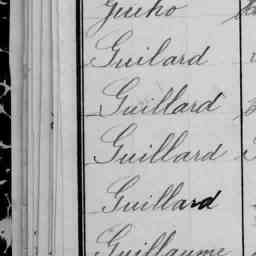 Guiho
Guilard
Guillard
Guillard
Guillard
Guillaume